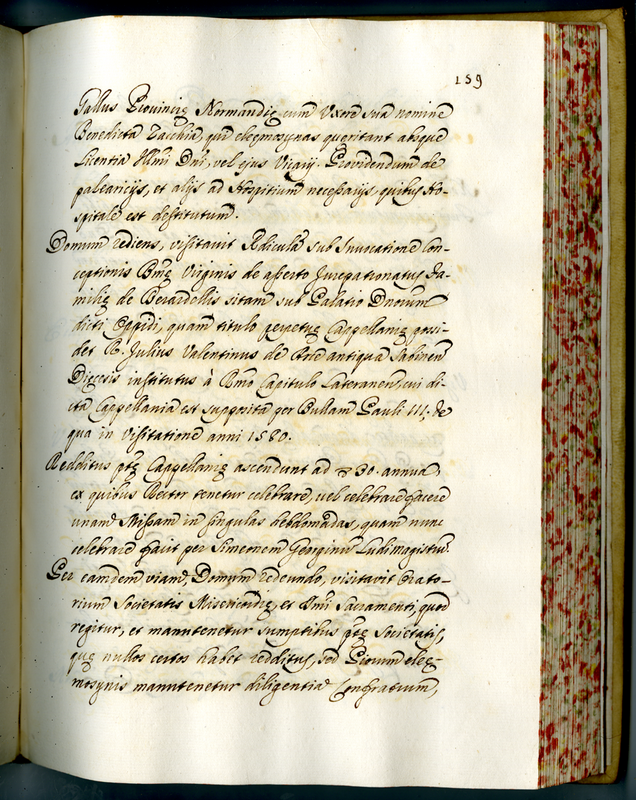 159
Gallus Provincię Normandię cum Uxore sua nomine
Benedicta Zacchia qui eleęmosynas queritant absque
Licentia Illmi Dni, vel ejus Vicarij. Providendum de
paleareijs, et alijs ad Hospitium necessarijs, quibus Ho-
spitale est destitutum.
Domum rediens, visitavit Ediculã sub Invocatione Con-
ceptionis Bmę Virginis de asserto Jurepationatus fa-
milię de Berardellis sitam sub Palatio Dnorum
dicti Oppidi, quam titulo perpetuę Cappellanię possi-
det R. Julius Valentinus de Arce antiqua Sabinen
Dięcesis institutus à Rmo Capitulo Lateranen, cui di-
cta Cappellania est supposita per Bullam Pauli III, de
qua in Visitatione anni 1580.
Redditus ptę Cappellanię ascendunt ad 30. annua,
ex quibus Rector tenetur celebrare, vel celebrare facere
unam Missam in singulas hebdomadas, quam nunc
celebrare facit per Simeonem Georginũ Ludimagistrũ.
Per eamdem viam, Domum redeundo, visitavit Orato-
rium Societatis Misericordię, et Smi Sacramenti, quod
regitur, et manutenetur sumptibus ptę Societatis,
quę nullos certos habet redditus, sed Piorum eleę-
mosynis manutenetur diligentia Confratrum,